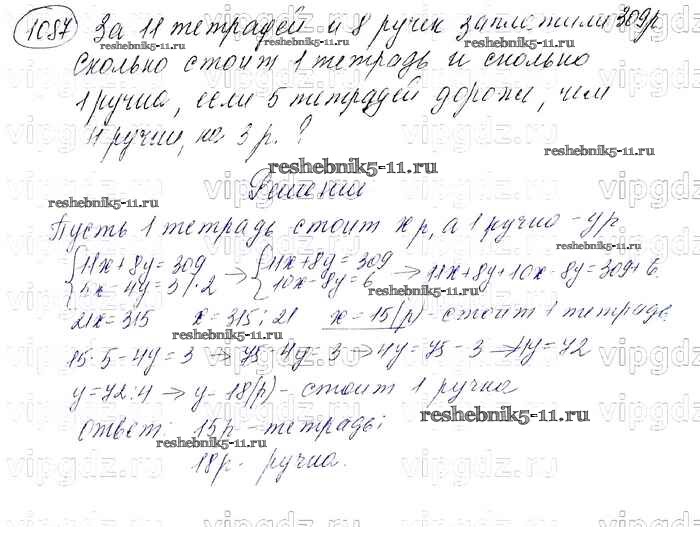 1087 За 11 тетрадей и 8 ручек заплатили 309р
Сколько стоит 1 тетрадь и сколько
1 ручка, если 5 тетрадей дороже, чем
4 ручки, на 3 р.?
Решение
Пусть 1 тетрадь стоит x р, а 1 ручка - y р
{11x+8y=309 → {11x+8y=309 → 11x+8y+10x-8y=309+6
5x-4y=3 |·2 10x-8y=6
21x=315 x=315:21 x=15(р) - стоит 1 тетрадь
15·5-4y=3 → 75-4y=3 → 4y=75-3 → 4y=72
y=72:4 → y=18(р) - стоит 1 ручка
ответ: 15р - тетрадь;
18р. ручка.
reshebnik5-11.ru
vipgdz.ru